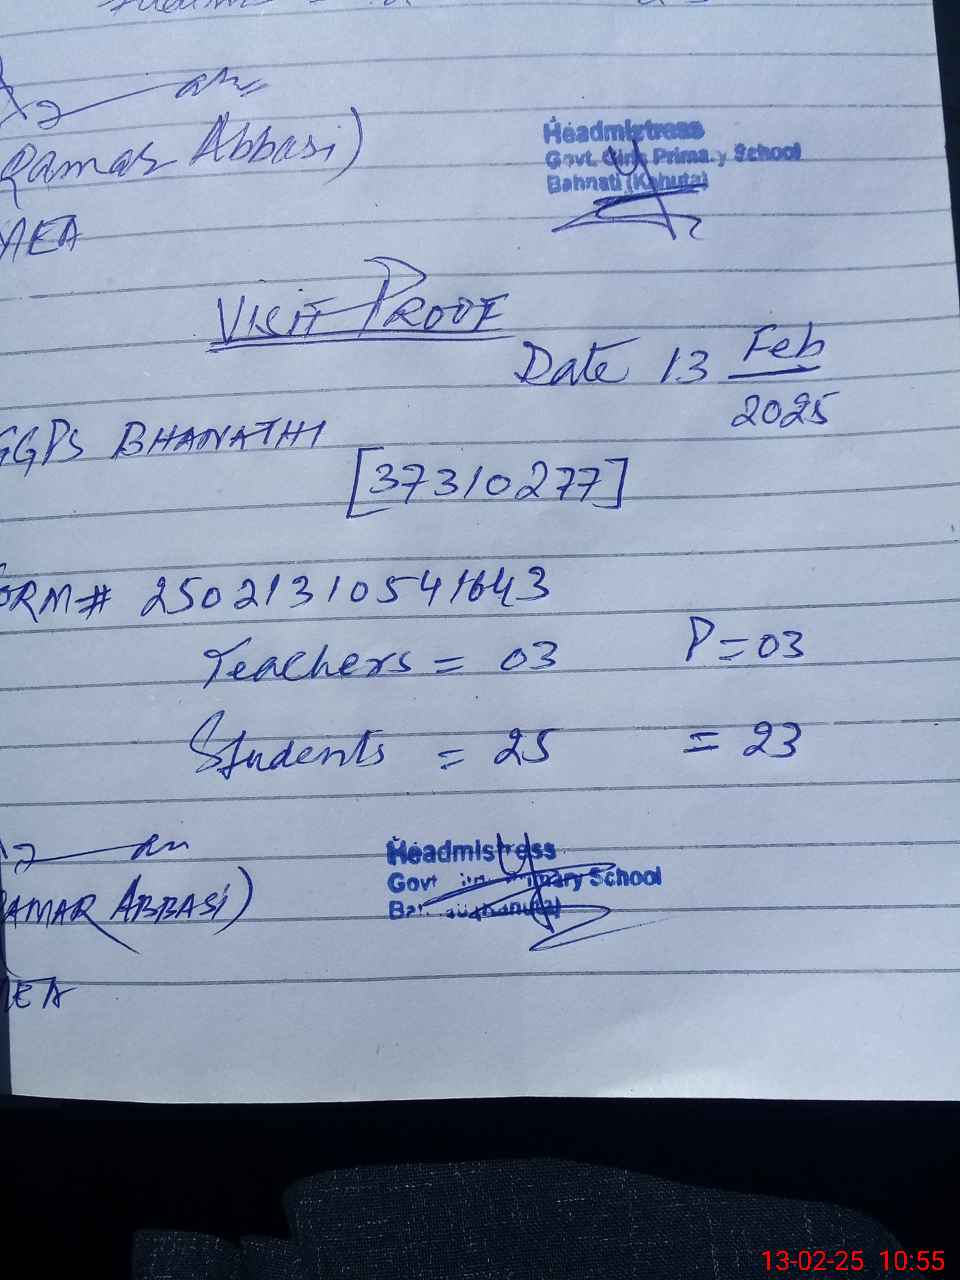 (Qamar Abbasi)
AEA
Headmistress
Govt. Girls Primary School
Bahnati (Kahuta)
VISIT PROOF
Date 13 Feb
2025
GGPS BHANATHI
[37310277]
FORM# 25021310541643
Teachers = 03 P = 03
Students = 25 = 23
Headmistress
Govt Primary School
(QAMAR ABBASI)
AEA
13-02-25 10:55